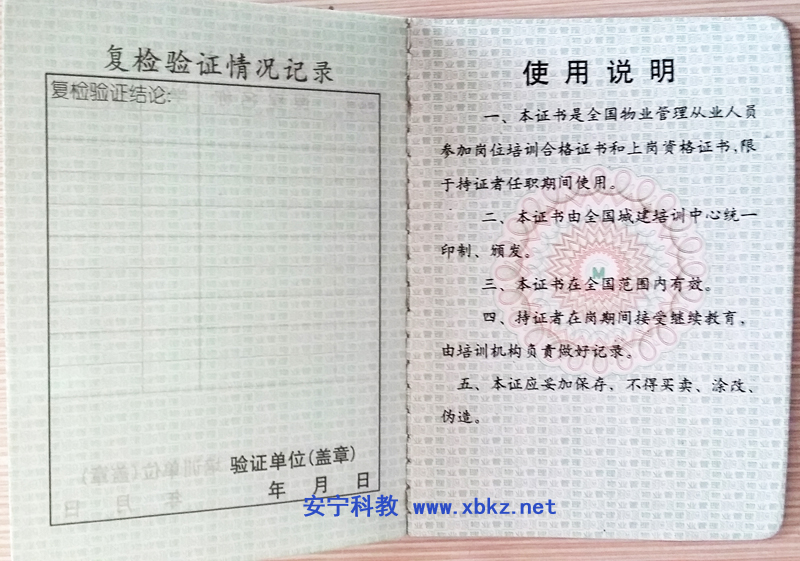 复检验证情况记录
复检验证结论:
验证单位(盖章)
年 月 日
使用说明
一、本证书是全国物业管理从业人员
参加岗位培训合格证书和上岗资格证书,限
于持证者任职期间使用。
二、本证书由全国城建培训中心统一
印制、颁发。
三、本证书在全国范围内有效。
四、持证者在岗期间接受继续教育,
由培训机构负责做好记录。
五、本证应妥加保存,不得买卖、涂改、
伪造。
M
安宁科教 www.xbkz.net